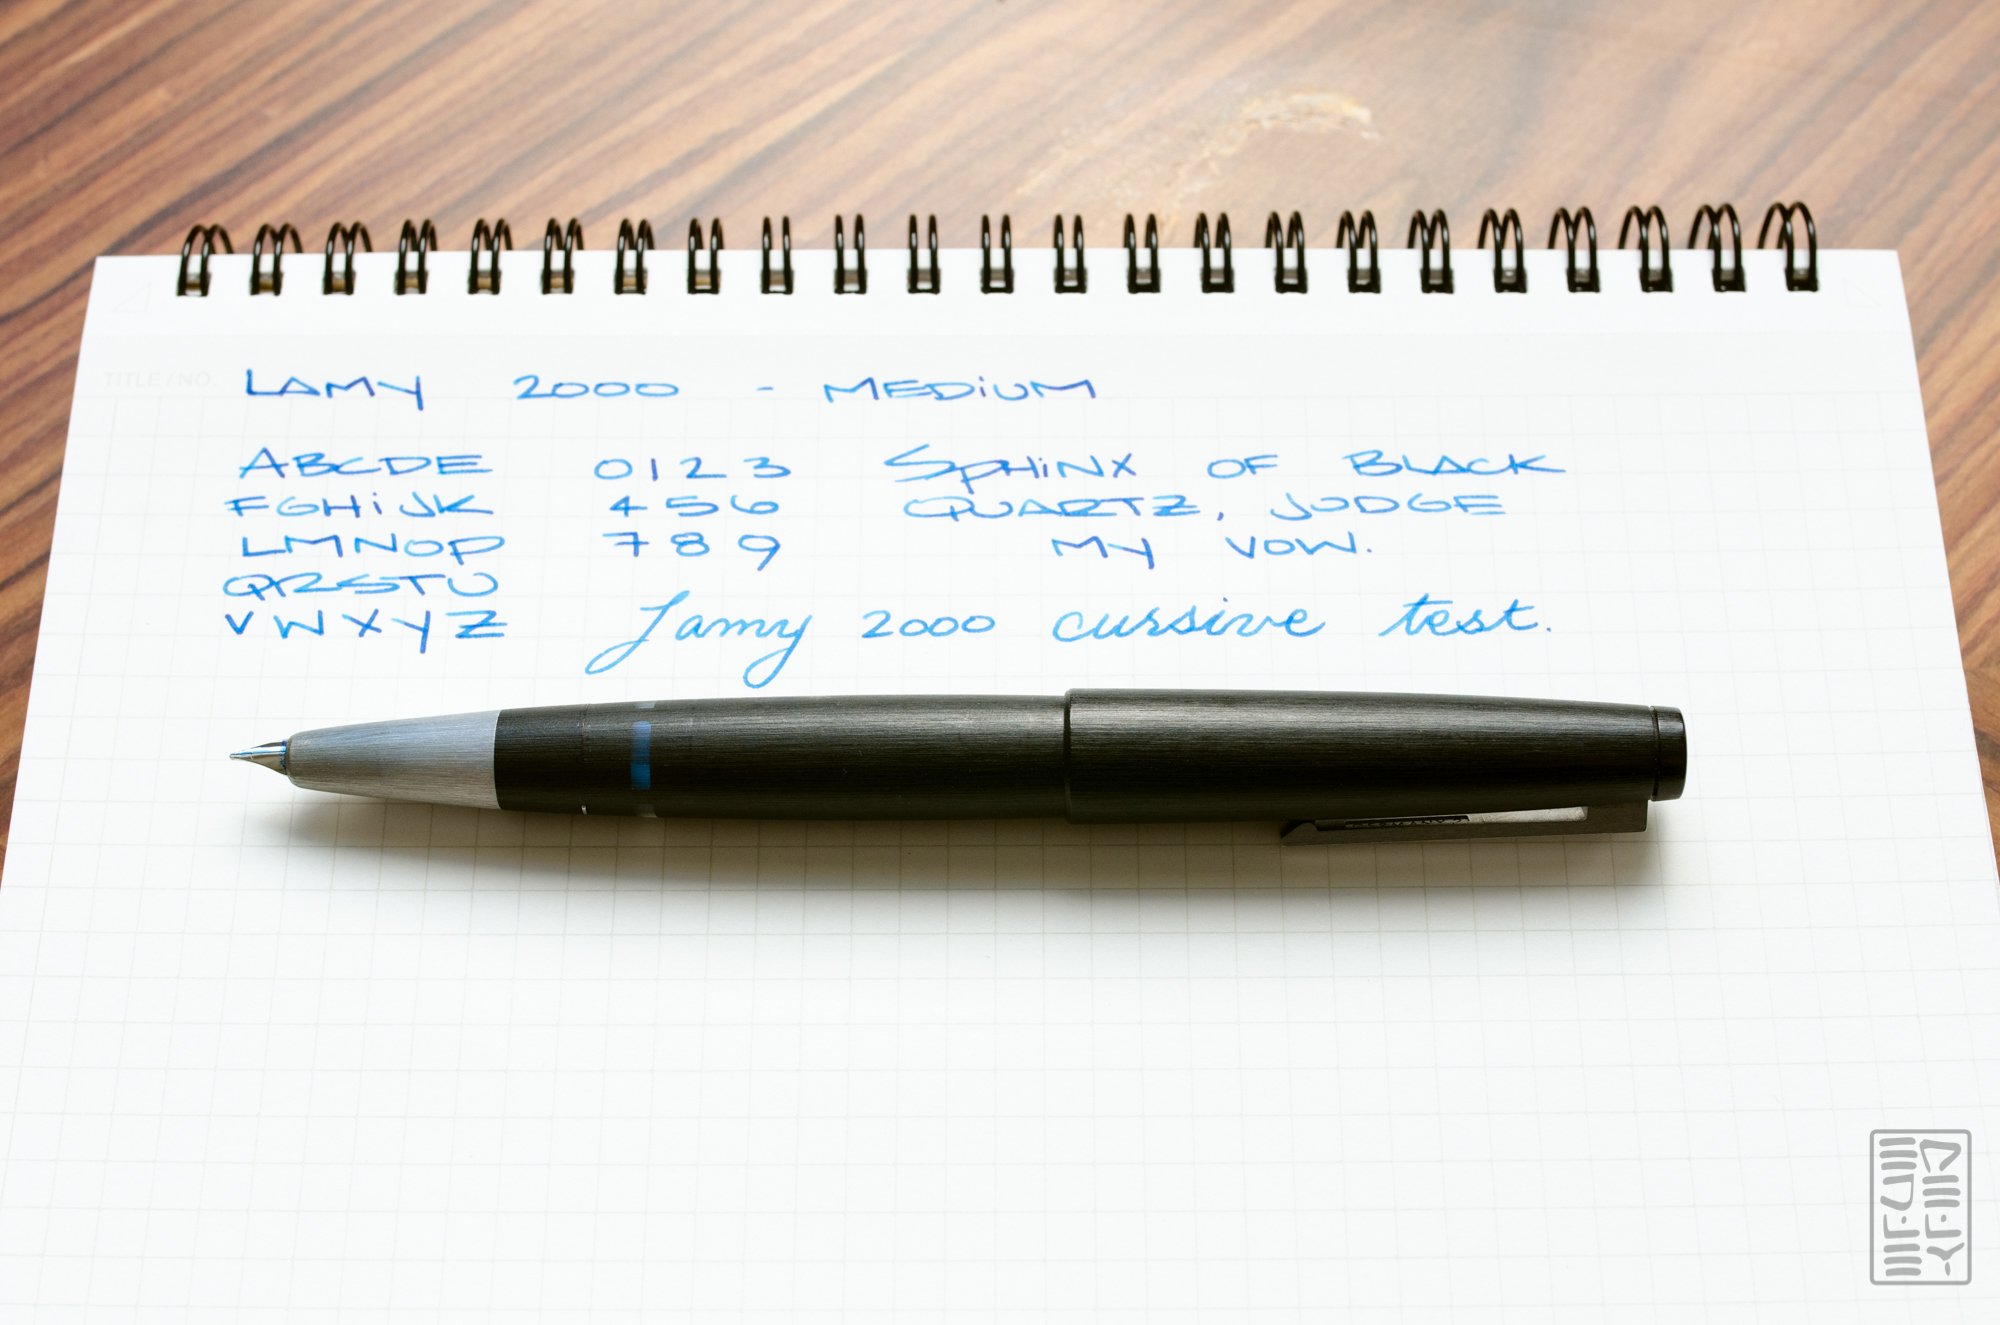 TITLE / NO.
LAMY 2000 - MEDiUM
ABCDE 0123 SPHiNX OF BLACK
FGHiJK 456 QUARTZ, JUDGE
LMNOP 789 MY VOW.
QRSTU
VWXYZ Lamy 2000 cursive test.